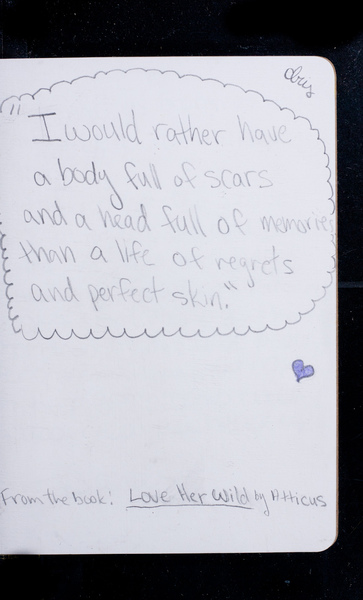 "I would rather have
a body full of scars
and a head full of memories
than a life of regrets
and perfect skin."
From the book: Love Her Wild by Atticus